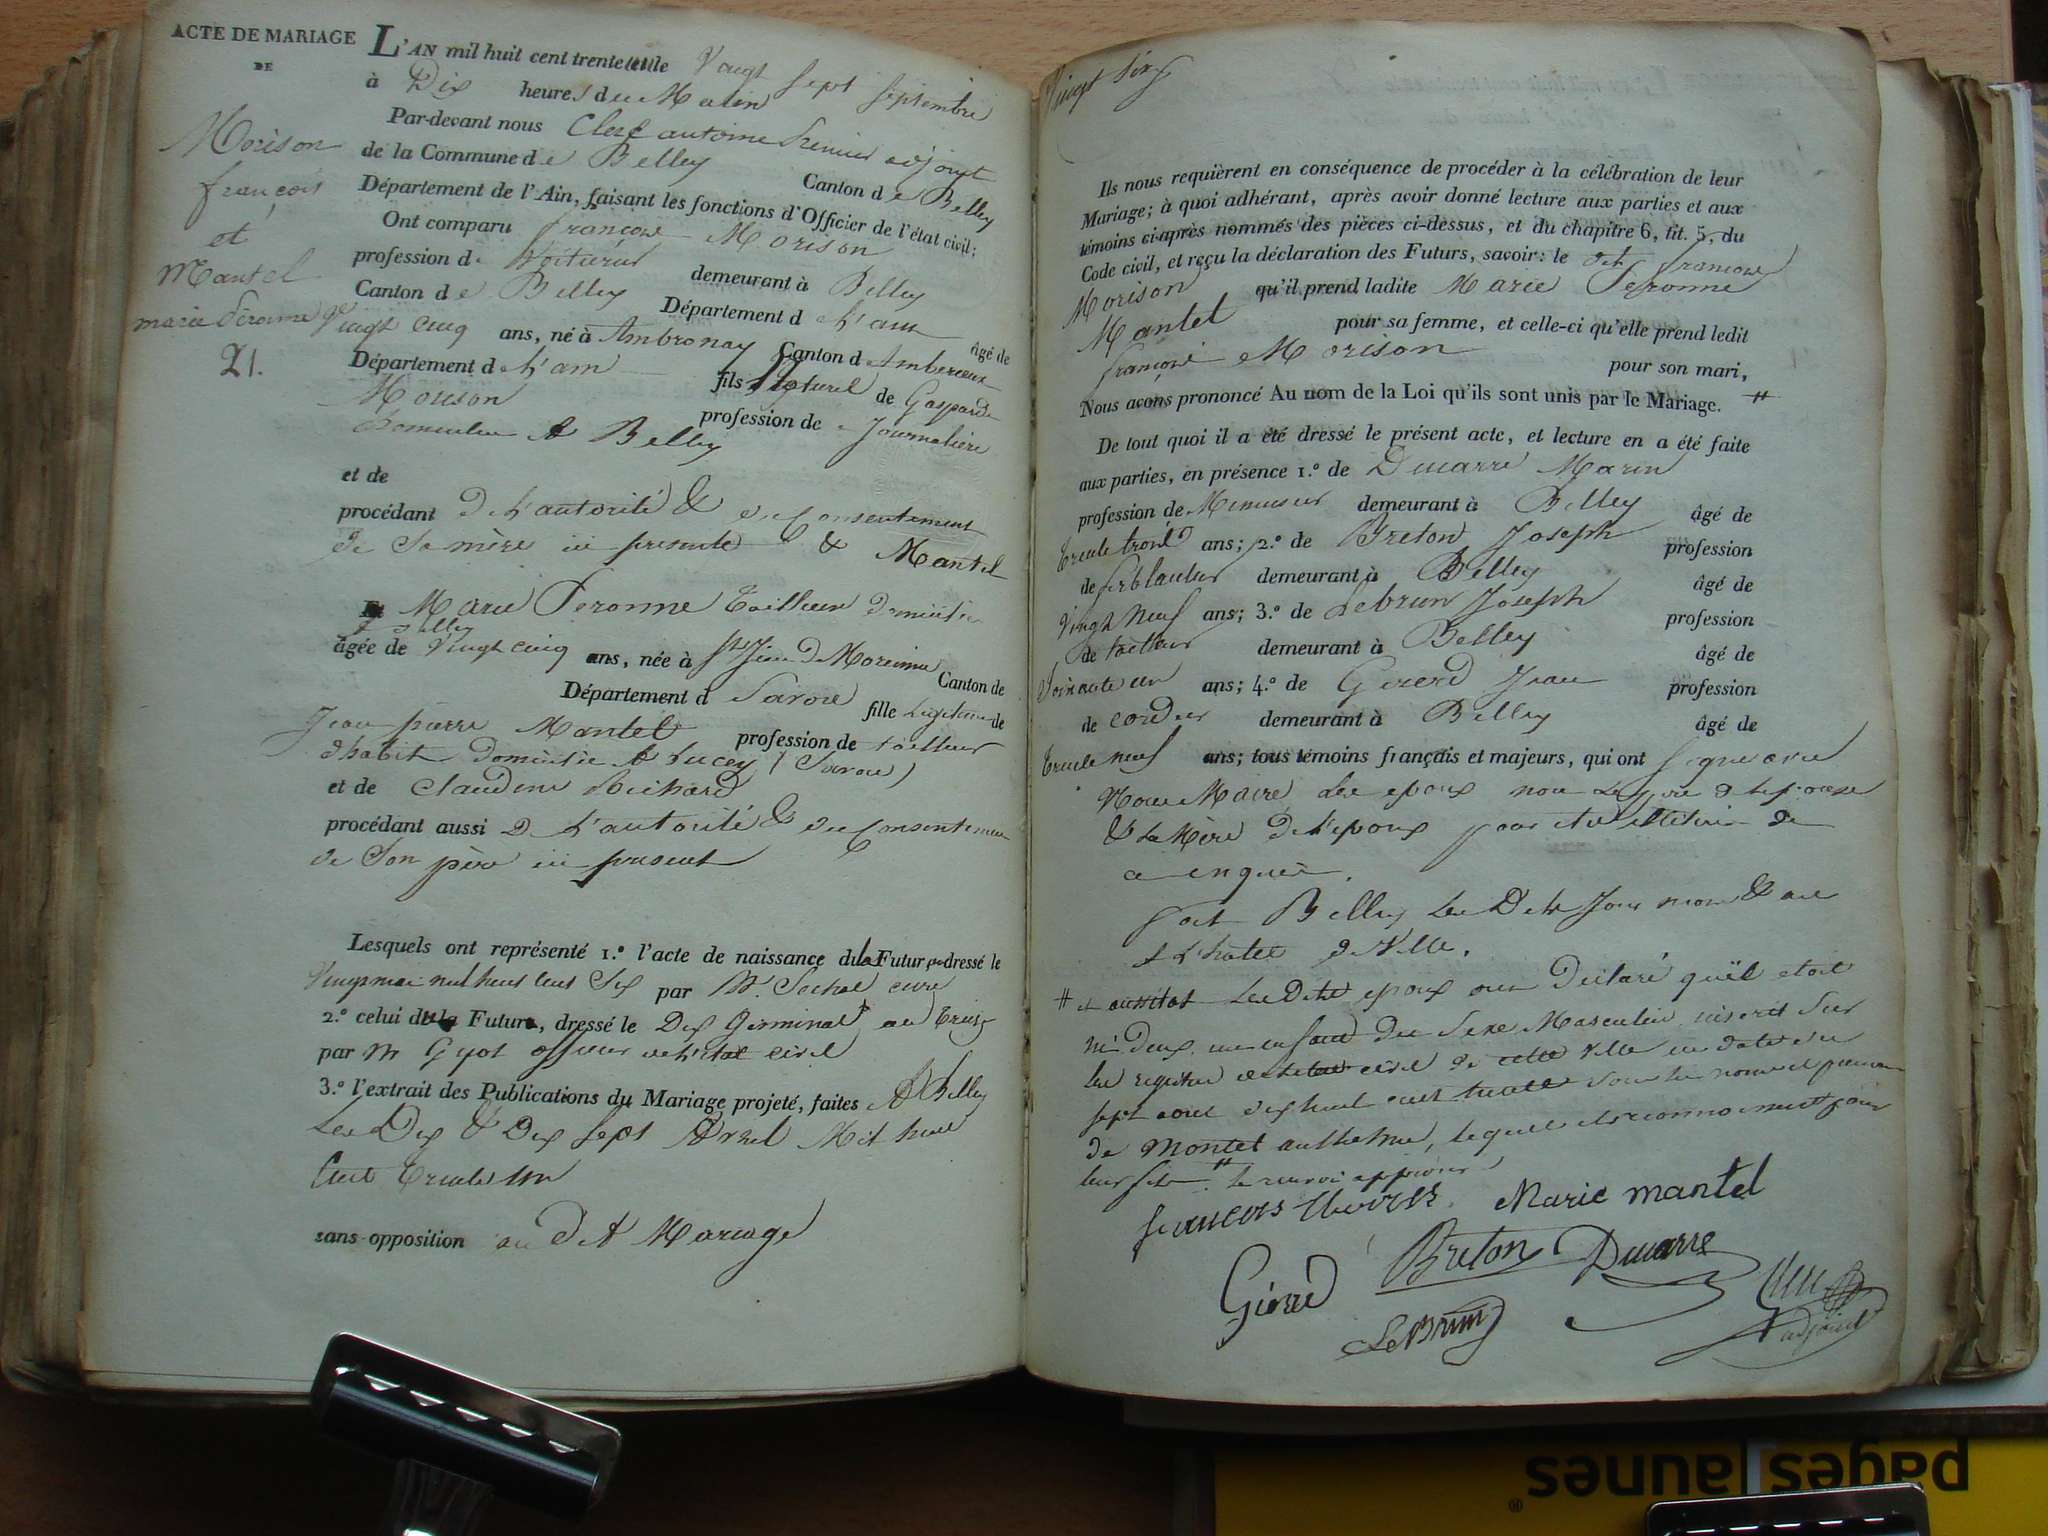 ACTE DE MARIAGE
DE
Morison
françois
et
Mantel
marie Peronne
21.
L'AN mil huit cent trente et un le Vingt Sept Septembre
à Dix heures du Matin
Par-devant nous Clerc antoine Premier adjoint
de la Commune de Belley Canton de Belley
Département de l'Ain, faisant les fonctions d'Officier de l'état civil;
Ont comparu françois Morison
profession de Voiturier demeurant à Belley
Canton de Belley Département d L'ain âgé de
Vingt cinq ans, né à Ambronay Canton d Amberieux
Département d L'ain fils Naturel de Gaspard
Morison profession de Journalière
Domiciliée A Belley
et de
procédant De L'autorité & du Consentement
de Sa mère ici presente & Mantel
Et Marie Peronne Tailleuse Domiciliée
A Belley
âgée de Vingt cinq ans, née à St Jean De Morienne Canton de
Département d Savoie fille Legitime de
Jean pierre Mantel profession de tailleur
d'habit Domicilié A Lucey (Savoie)
et de Claudine Richard
procédant aussi De L'autorité & du Consentement
de Son père ici present
Lesquels ont représenté 1.º l'acte de naissance de la Future dressé le
mai mil huit cent Six par Mr. curé
2.º celui du Futur, dressé le Dix Germinal an Treize
par Mr Guyot officier de L'etat civil
3.º l'extrait des Publications du Mariage projeté, faites A Belley
Les Dix & Dix Sept Avril Mil huit
Cent Trente un
sans opposition au Dit Mariage
Vingt Six
Ils nous requièrent en conséquence de procéder à la célébration de leur
Mariage; à quoi adhérant, après avoir donné lecture aux parties et aux
témoins ci-après nommés des pièces ci-dessus, et du chapitre 6, tit. 5, du
Code civil, et reçu la déclaration des Futurs, savoir: le dit françois
Morison qu'il prend ladite Marie Peronne
Mantel pour sa femme, et celle-ci qu'elle prend ledit
françois Morison pour son mari,
Nous avons prononcé Au nom de la Loi qu'ils sont unis par le Mariage. #
De tout quoi il a été dressé le présent acte, et lecture en a été faite
aux parties, en présence 1.º de Ducarre Marin
profession de Menuisier demeurant à Belley âgé de
Trente trois ans; 2.º de Breton Joseph profession
de ferblantier demeurant à Belley âgé de
Vingt Neuf ans; 3.º de Lebrun Joseph profession
de tailleur demeurant à Belley âgé de
Soixante un ans; 4.º de Girerd Jean profession
de cordier demeurant à Belley âgé de
Trente neuf ans; tous témoins français et majeurs, qui ont Signé avec
Nous Maire, Les epoux non Le père de L'epouse
& La Mère de L'epoux pour etre illiteré de
ce enquis.
fait Belley Les Dits Jour mois & an
A L'hotel de Ville.
# et aussitot Les Dits epoux ont Declaré qu'il etoit
né D'eux un enfant du Sexe Masculin inscrit Sur
les registres de L'etat civil de cette Ville en date du
sept aout dix huit cent trente sous les noms et prenoms
de Montel anthelme, lequel ils reconnoissent pour
leur fils. # le renvoi approuvé
francois Morison. Marie mantel
Girerd Breton Ducarre Clerc
LeBrun adjoint
pages jaunes